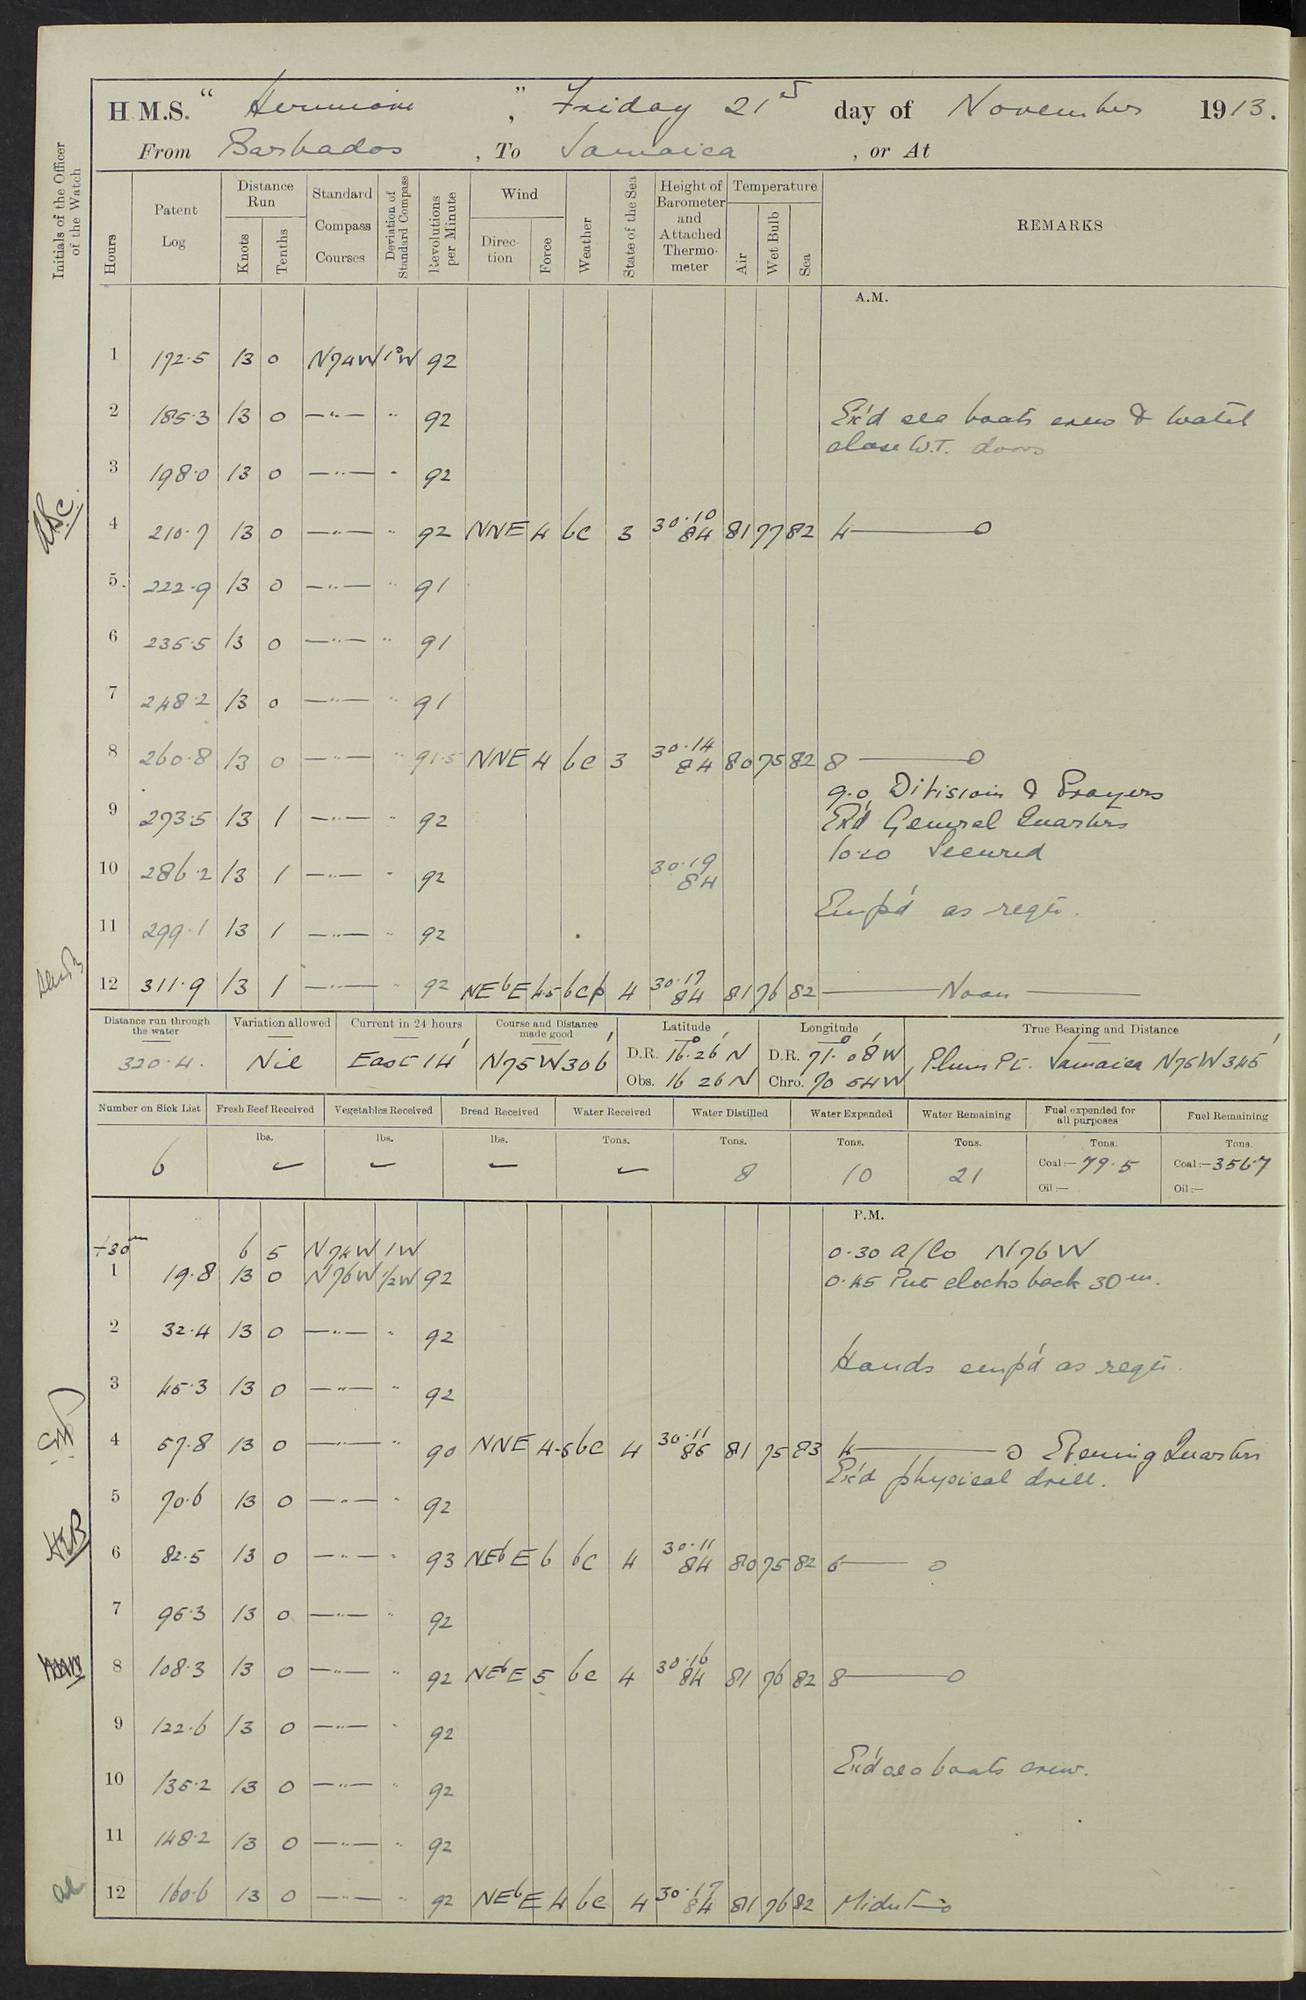 H.M.S. "Hermione", Friday 21st day of November 1913.
From Barbados, To Jamaica, or At
Initials of the Officer of the Watch
Hours
Patent Log
Distance Run
Knots
Tenths
Standard Compass Courses
Deviation of Standard Compass
Revolutions per Minute
Wind
Direction
Force
Weather
State of the Sea
Height of Barometer and Attached Thermometer
Temperature
Air
Wet Bulb
Sea
REMARKS
A.M.
1 172.5 13 0 N74W 1°W 92
2 185.3 13 0 —"— " 92 Ex'd sea boats crew & watch
close W.T. doors
3 198.0 13 0 —"— " 92
4 210.7 13 0 —"— " 92 NNE 4 bc 3 30.10 84 81 77 82 4 — 0
5 222.9 13 0 —"— " 91
6 235.5 13 0 —"— " 91
7 248.2 13 0 —"— " 91
8 260.8 13 0 —"— " 91.5 NNE 4 bc 3 30.14 84 80 75 82 8 — 0
9.0 Divisions & Prayers
9 273.5 13 1 —"— " 92 Ex'd General Quarters
10.20 Secured
10 286.2 13 1 —"— " 92 30.19 84
Emp'd as reqte.
11 299.1 13 1 —"— " 92
12 311.9 13 1 —"— " 92 NEbE 4.5 bcp 4 30.17 84 81 76 82 — Noon —
Distance run through the water 320.4.
Variation allowed Nil
Current in 24 hours East 14'
Course and Distance made good N75W 306'
Latitude D.R. 16° 26' N Obs. 16 26 N
Longitude D.R. 71° 08' W Chro. 70 54 W
True Bearing and Distance Plum Pt. Jamaica N75W 345'
Number on Sick List 6
Fresh Beef Received lbs. ✓
Vegetables Received lbs. ✓
Bread Received lbs. ✓
Water Received Tons. ✓
Water Distilled Tons. 8
Water Expended Tons. 10
Water Remaining Tons. 21
Fuel expended for all purposes Tons. Coal:— 79.5 Oil:—
Fuel Remaining Tons. Coal:— 356.7 Oil:—
P.M.
+30m 6 5 N74W 1W 0.30 A/Co N76W
1 19.8 13 0 N76W 1/2W 92 0.45 Put clocks back 30m.
2 32.4 13 0 —"— " 92
Hands emp'd as reqte.
3 45.3 13 0 —"— " 92
4 57.8 13 0 —"— " 90 NNE 4-5 bc 4 30.11 85 81 75 83 4 — 0 Evening Quarters
Ex'd physical drill.
5 70.6 13 0 —"— " 92
6 82.5 13 0 —"— " 93 NEbE 6 bc 4 30.11 84 80 75 82 6 — 0
7 95.3 13 0 —"— " 92
8 108.3 13 0 —"— " 92 NEbE 5 bc 4 30.16 84 81 76 82 8 — 0
9 122.6 13 0 —"— " 92
Ex'd sea boats crew.
10 135.2 13 0 —"— " 92
11 148.2 13 0 —"— " 92
12 160.6 13 0 —"— " 92 NEbE 4 bc 4 30.17 84 81 76 82 Midnt — 0